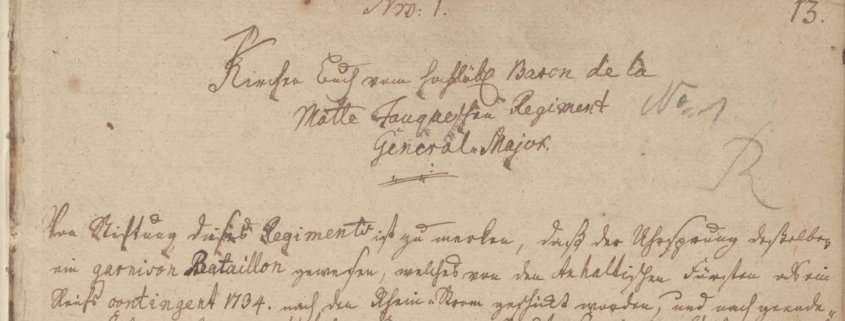 Nro: 1.
13.
Kirchen Buch vom hochlöbl. Baron de la
Motte Fouqueschen Regiment
No. 1
General-Major.
R
Von Stiftung dieses Regiments ist zu merken, daß der Uhrsprung desselben
ein garnison Bataillon gewesen, welches von den Anhaltischen Fürsten als ein
Reichs contingent 1734. nach den Rhein-Strom geschickt worden, und nach geende-